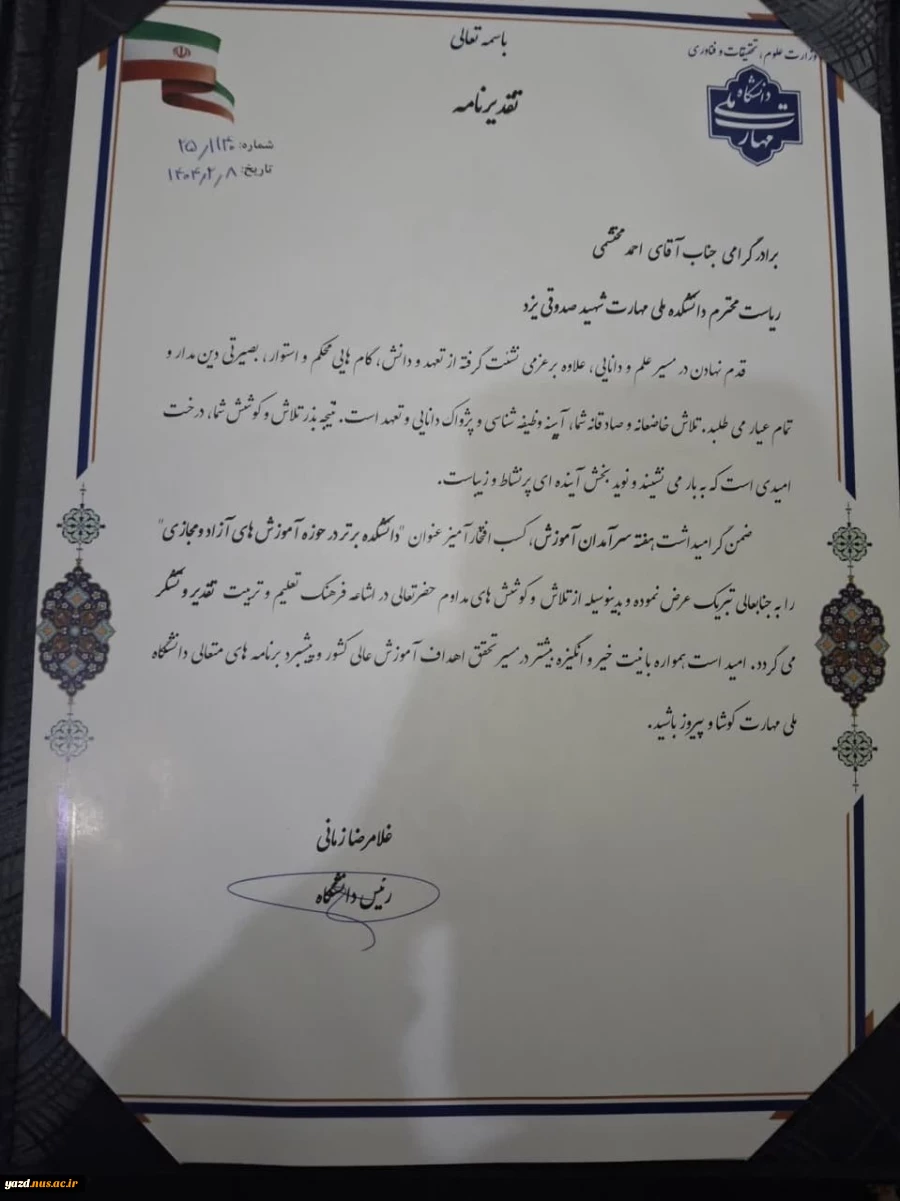 باسمه تعالی
وزارت علوم، تحقیقات و فناوری
دانشگاه ملی مهارت
تقدیرنامه
شماره: ۲۵/۱۱۳۰
تاریخ: ۱۴۰۴/۲/۸
برادر گرامی جناب آقای احمد محتشمی
ریاست محترم دانشکده ملی مهارت شهید صدوقی یزد
قدم نهادن در مسیر علم و دانایی، علاوه بر عزمی نشئت گرفته از تعهد و دانش، گام هایی محکم و استوار، بصیرتی دین مدار و
تمام عیار می طلبد. تلاش خاضعانه و صادقانه شما، آیینه وظیفه شناسی و پژواک دانایی و تعهد است. نتیجه بذر تلاش و کوشش شما، درخت
امیدی است که به بار می نشیند و نوید بخش آینده ای پر نشاط و زیباست.
ضمن گرامیداشت هفته سرآمدان آموزش، کسب افتخار آمیز عنوان "دانشکده برتر در حوزه آموزش های آزاد و مجازی"
را به جنابعالی تبریک عرض نموده و بدینوسیله از تلاش و کوشش های مداوم حضرتعالی در اشاعه فرهنگ تعلیم و تربیت تقدیر و تشکر
می گردد. امید است همواره با نیت خیر و انگیزه بیشتر در مسیر تحقق اهداف آموزش عالی کشور و پیشبرد برنامه های متعالی دانشگاه
ملی مهارت کوشا و پیروز باشید.
غلامرضا زمانی
رئیس دانشگاه
yazd.nus.ac.ir